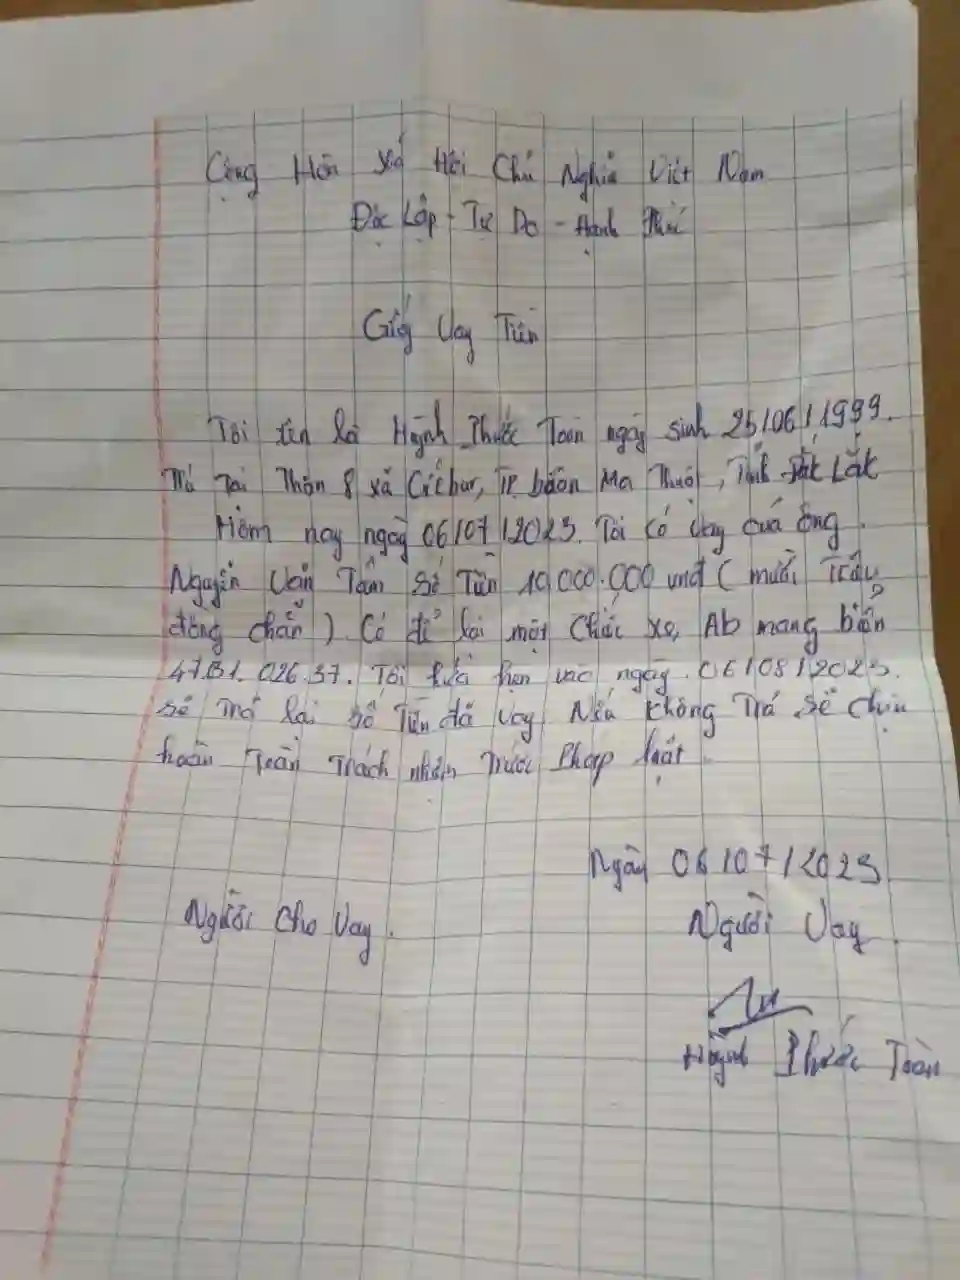 Cộng Hòa Xã Hội Chủ Nghĩa Việt Nam
Độc Lập - Tự Do - Hạnh Phúc
Giấy Vay Tiền
Tôi tên là Huỳnh Phước Toàn ngày sinh 25/06/1999.
Trú Tại Thôn 8 xã Cưêbur, TP buôn Ma Thuột, Tỉnh Đắk Lắk
Hôm nay ngày 06/07/2023. Tôi có vay của ông
Nguyễn Văn Tâm số Tiền 10.000.000 vnđ ( mười Triệu
đồng chẵn ) Có để lại một Chiếc xe, Ab mang biển
47B1. 026.37. Tôi hứa hẹn vào ngày. 06/08/2023.
sẽ Trả lại số Tiền đã vay. Nếu không Trả sẽ chịu
hoàn Toàn Trách nhiệm Trước Pháp luật.
Ngày 06/07/2023
Người Cho Vay.
Người Vay
Huỳnh Phước Toàn